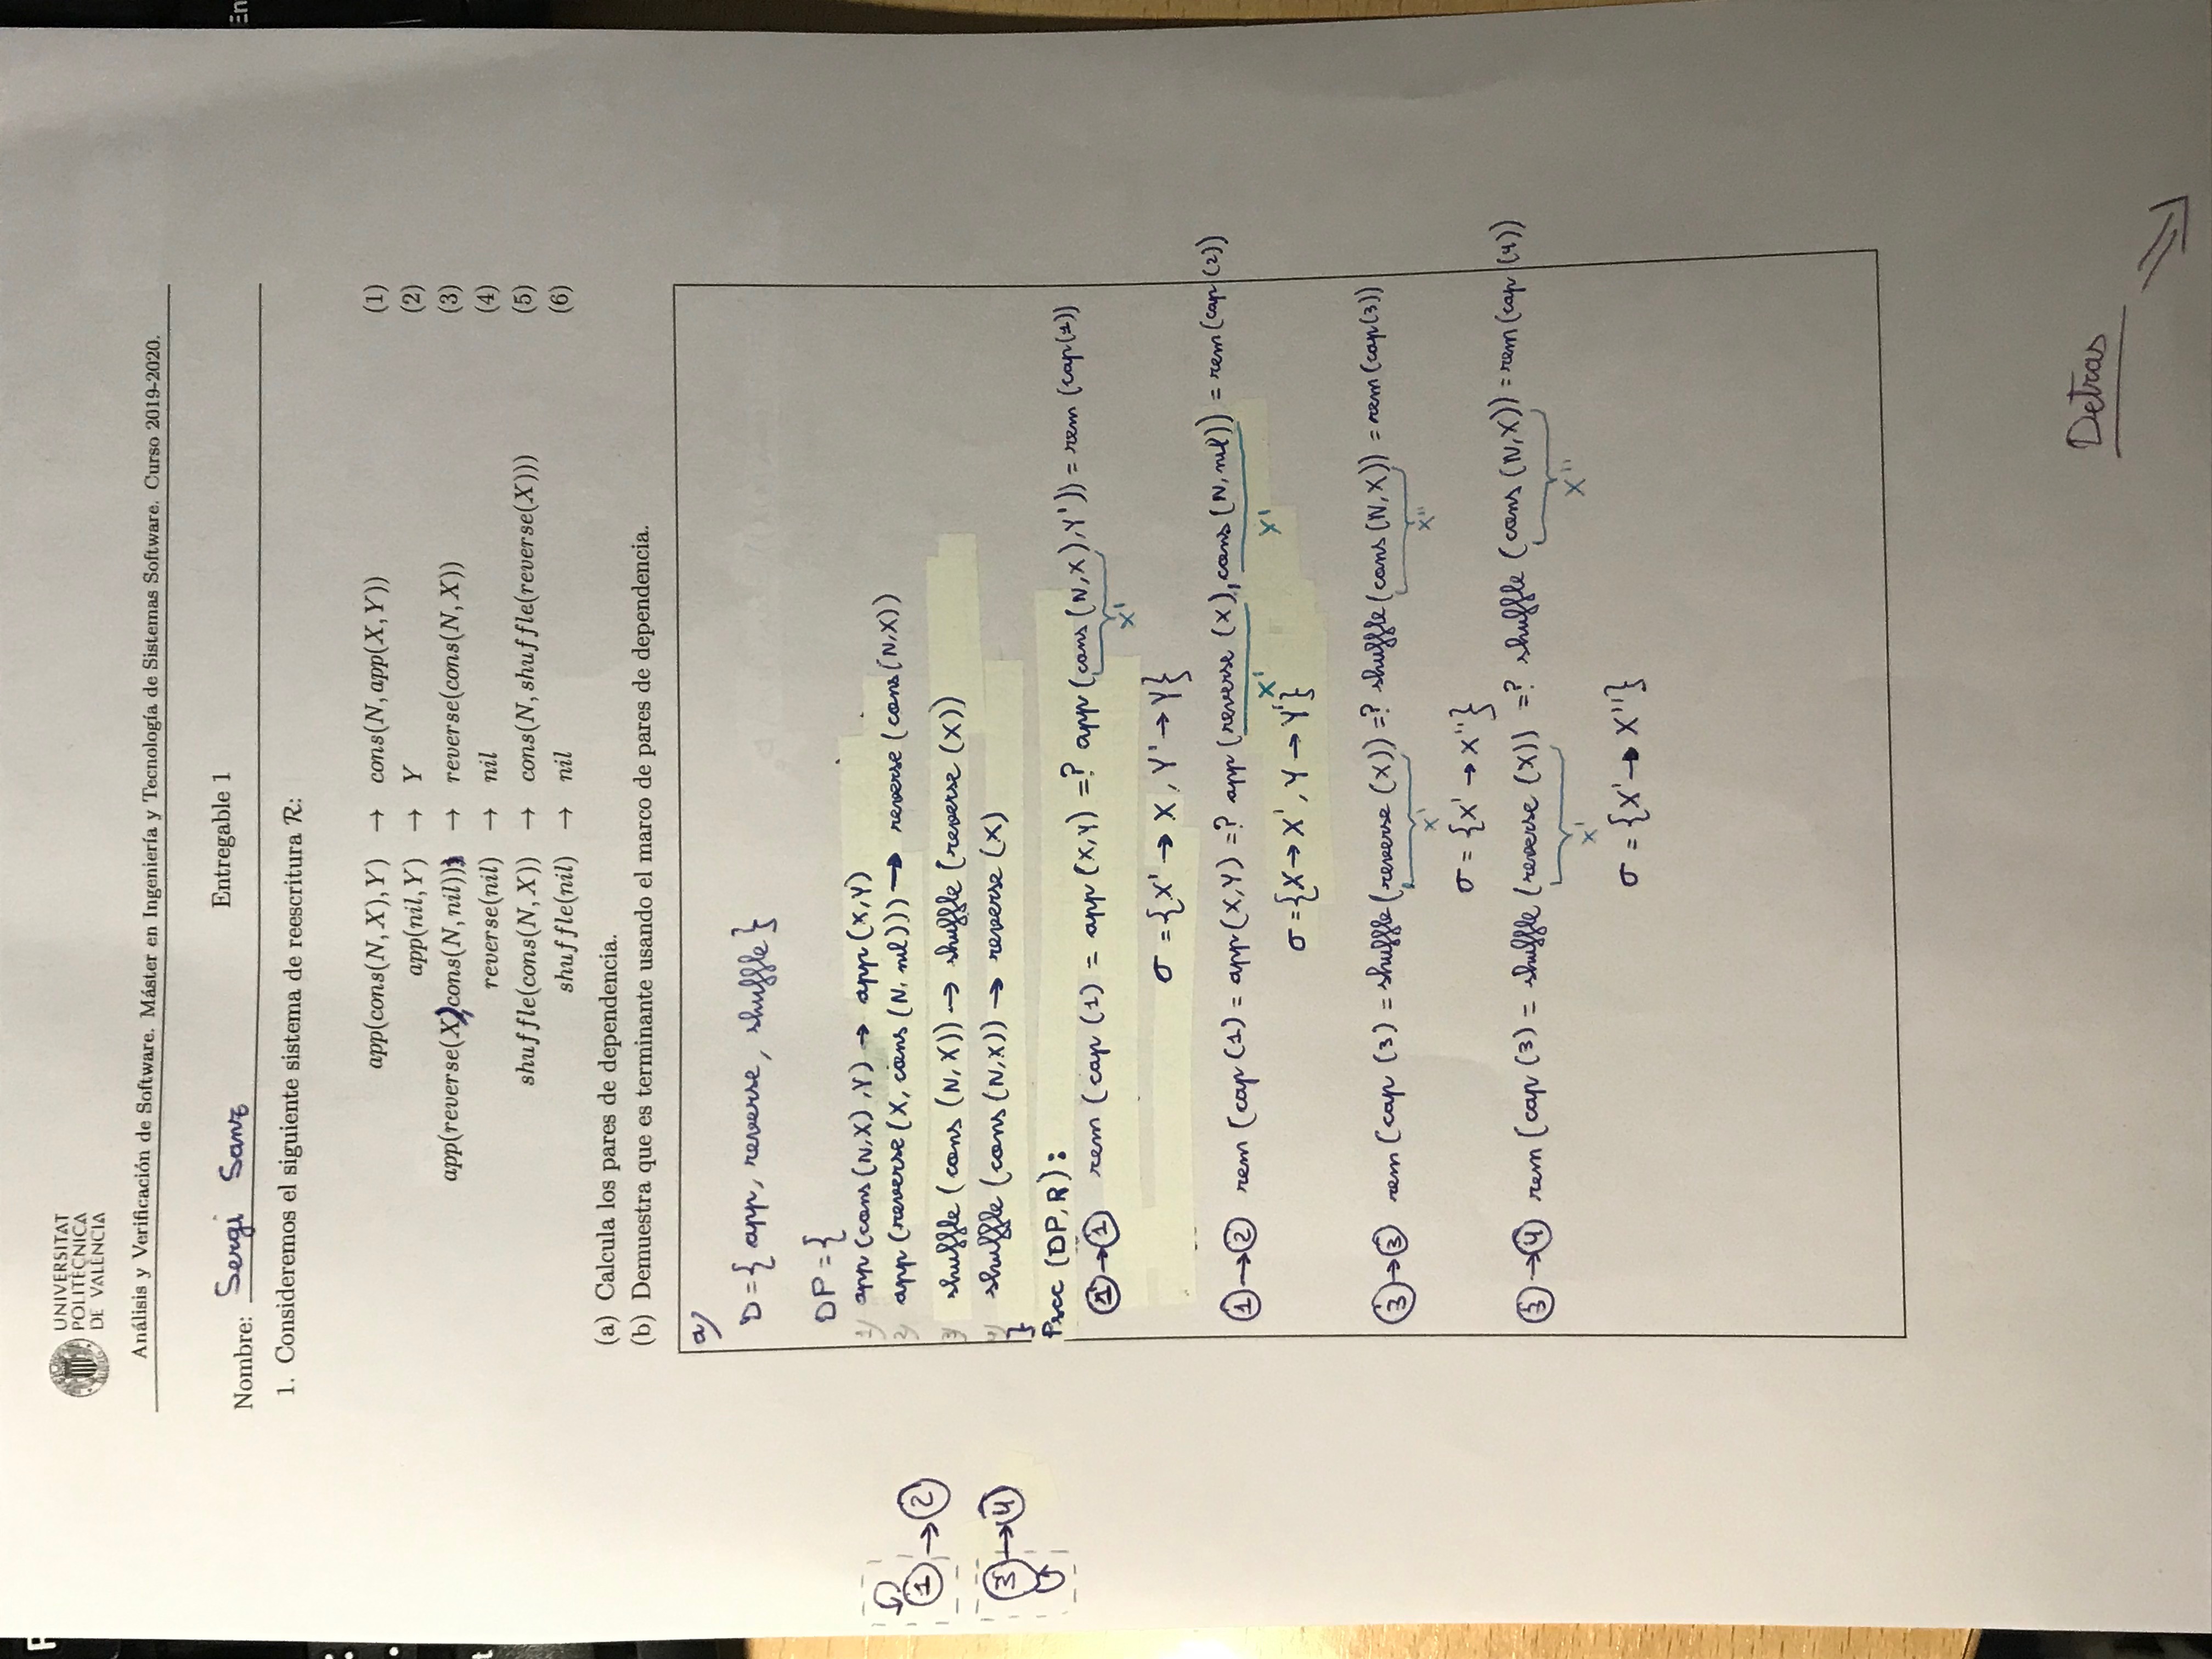 UNIVERSITAT
POLITÈCNICA
DE VALÈNCIA
Análisis y Verificación de Software. Máster en Ingeniería y Tecnología de Sistemas Software. Curso 2019-2020.
Entregable 1
Nombre: Sergi Sanz
1. Consideremos el siguiente sistema de reescritura R:
app(cons(N, X), Y) → cons(N, app(X, Y)) (1)
app(nil, Y) → Y (2)
app(reverse(X),cons(N, nil)) → reverse(cons(N, X)) (3)
reverse(nil) → nil (4)
shuffle(cons(N, X)) → cons(N, shuffle(reverse(X))) (5)
shuffle(nil) → nil (6)
(a) Calcula los pares de dependencia.
(b) Demuestra que es terminante usando el marco de pares de dependencia.
a)
D = { app, reverse, shuffle }
DP = {
1) app (cons (N,X), Y) → app (X,Y)
2) app (reverse (X, cons (N, nil))) → reverse (cons (N,X))
3) shuffle (cons (N, X)) → shuffle (reverse (X))
4) shuffle (cons (N,X)) → reverse (X)
}
1 → 2
3 → 4
Pscc (DP, R):
1 → 1 rem (cap (1) = app (X,Y) =? app (cons (N,X), Y')) = rem (cap(1))
X'
σ = {X' → X, Y' → Y}
1 → 2 rem (cap (1) = app (X,Y) =? app (reverse (X), cons (N, nil)) = rem (cap (2))
X' Y'
σ = {X → X', Y → Y'}
3 → 3 rem (cap (3) = shuffle (reverse (X)) =? shuffle (cons (N, X)) = rem (cap(3))
X' X''
σ = {X' → X''}
3 → 4 rem (cap (3) = shuffle (reverse (X)) =? shuffle (cons (N,X)) = rem (cap (4))
X' X''
σ = {X' → X''}
Detras